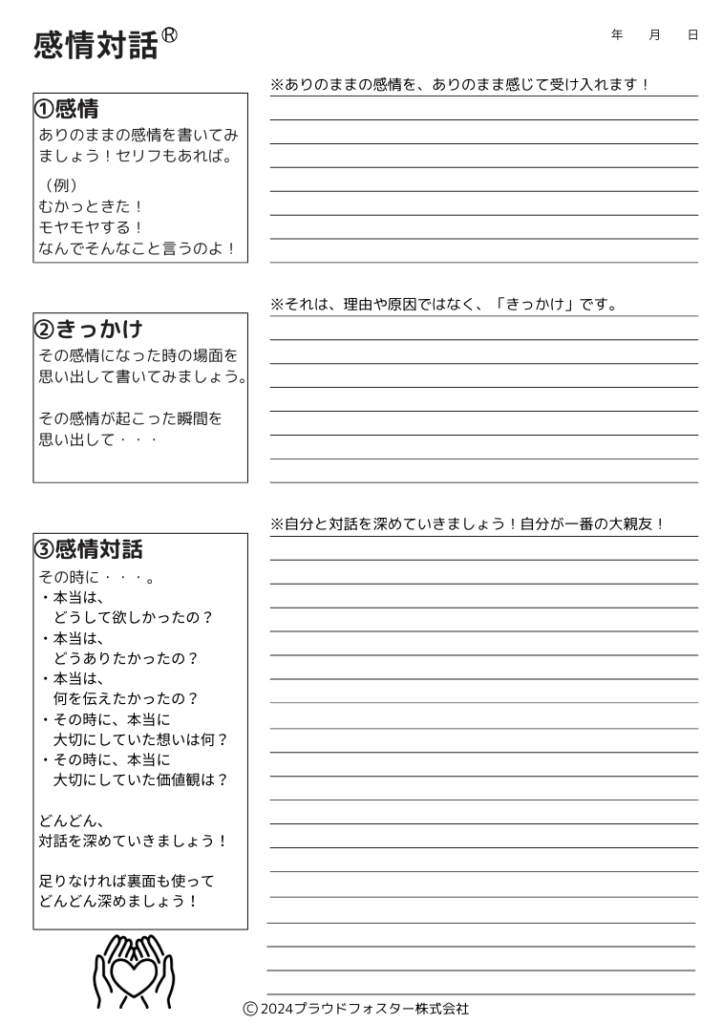 感情対話®
年 月 日
※ありのままの感情を、ありのまま感じて受け入れます！
①感情
ありのままの感情を書いてみ
ましょう！セリフもあれば。
（例）
むかっときた！
モヤモヤする！
なんでそんなこと言うのよ！
※それは、理由や原因ではなく、「きっかけ」です。
②きっかけ
その感情になった時の場面を
思い出して書いてみましょう。
その感情が起こった瞬間を
思い出して・・・
※自分と対話を深めていきましょう！自分が一番の大親友！
③感情対話
その時に・・・。
・本当は、
どうして欲しかったの？
・本当は、
どうありたかったの？
・本当は、
何を伝えたかったの？
・その時に、本当に
大切にしていた想いは何？
・その時に、本当に
大切にしていた価値観は？
どんどん、
対話を深めていきましょう！
足りなければ裏面も使って
どんどん深めましょう！
Ⓒ2024プラウドフォスター株式会社